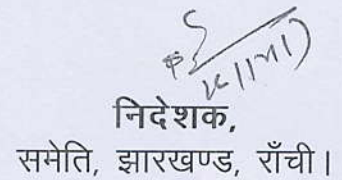 निदेशक,
समेति, झारखण्ड, राँची।